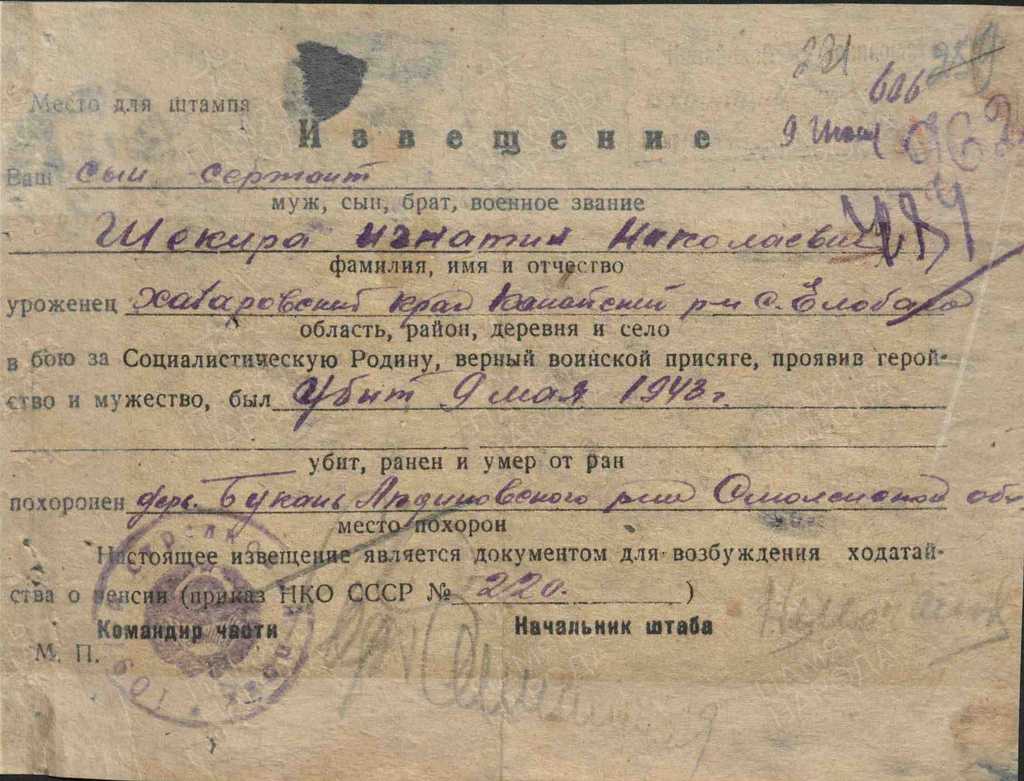 231
606
Место для штампа
Извещение
9
Ваш сын сержант
муж, сын, брат, военное звание
Шекура Игнатий Николаевич
фамилия, имя и отчество
уроженец Хабаровский край р-н с. Елабага
область, район, деревня и село
в бою за Социалистическую Родину, верный воинской присяге, проявив герой-
ство и мужество, был Убит 9 мая 1943 г.
убит, ранен и умер от ран
похоронен дер. Букань Смоленской обл
место похорон
Настоящее извещение является документом для возбуждения ходатай-
ства о пенсии (приказ НКО СССР № 220. )
Командир части Начальник штаба
М. П.